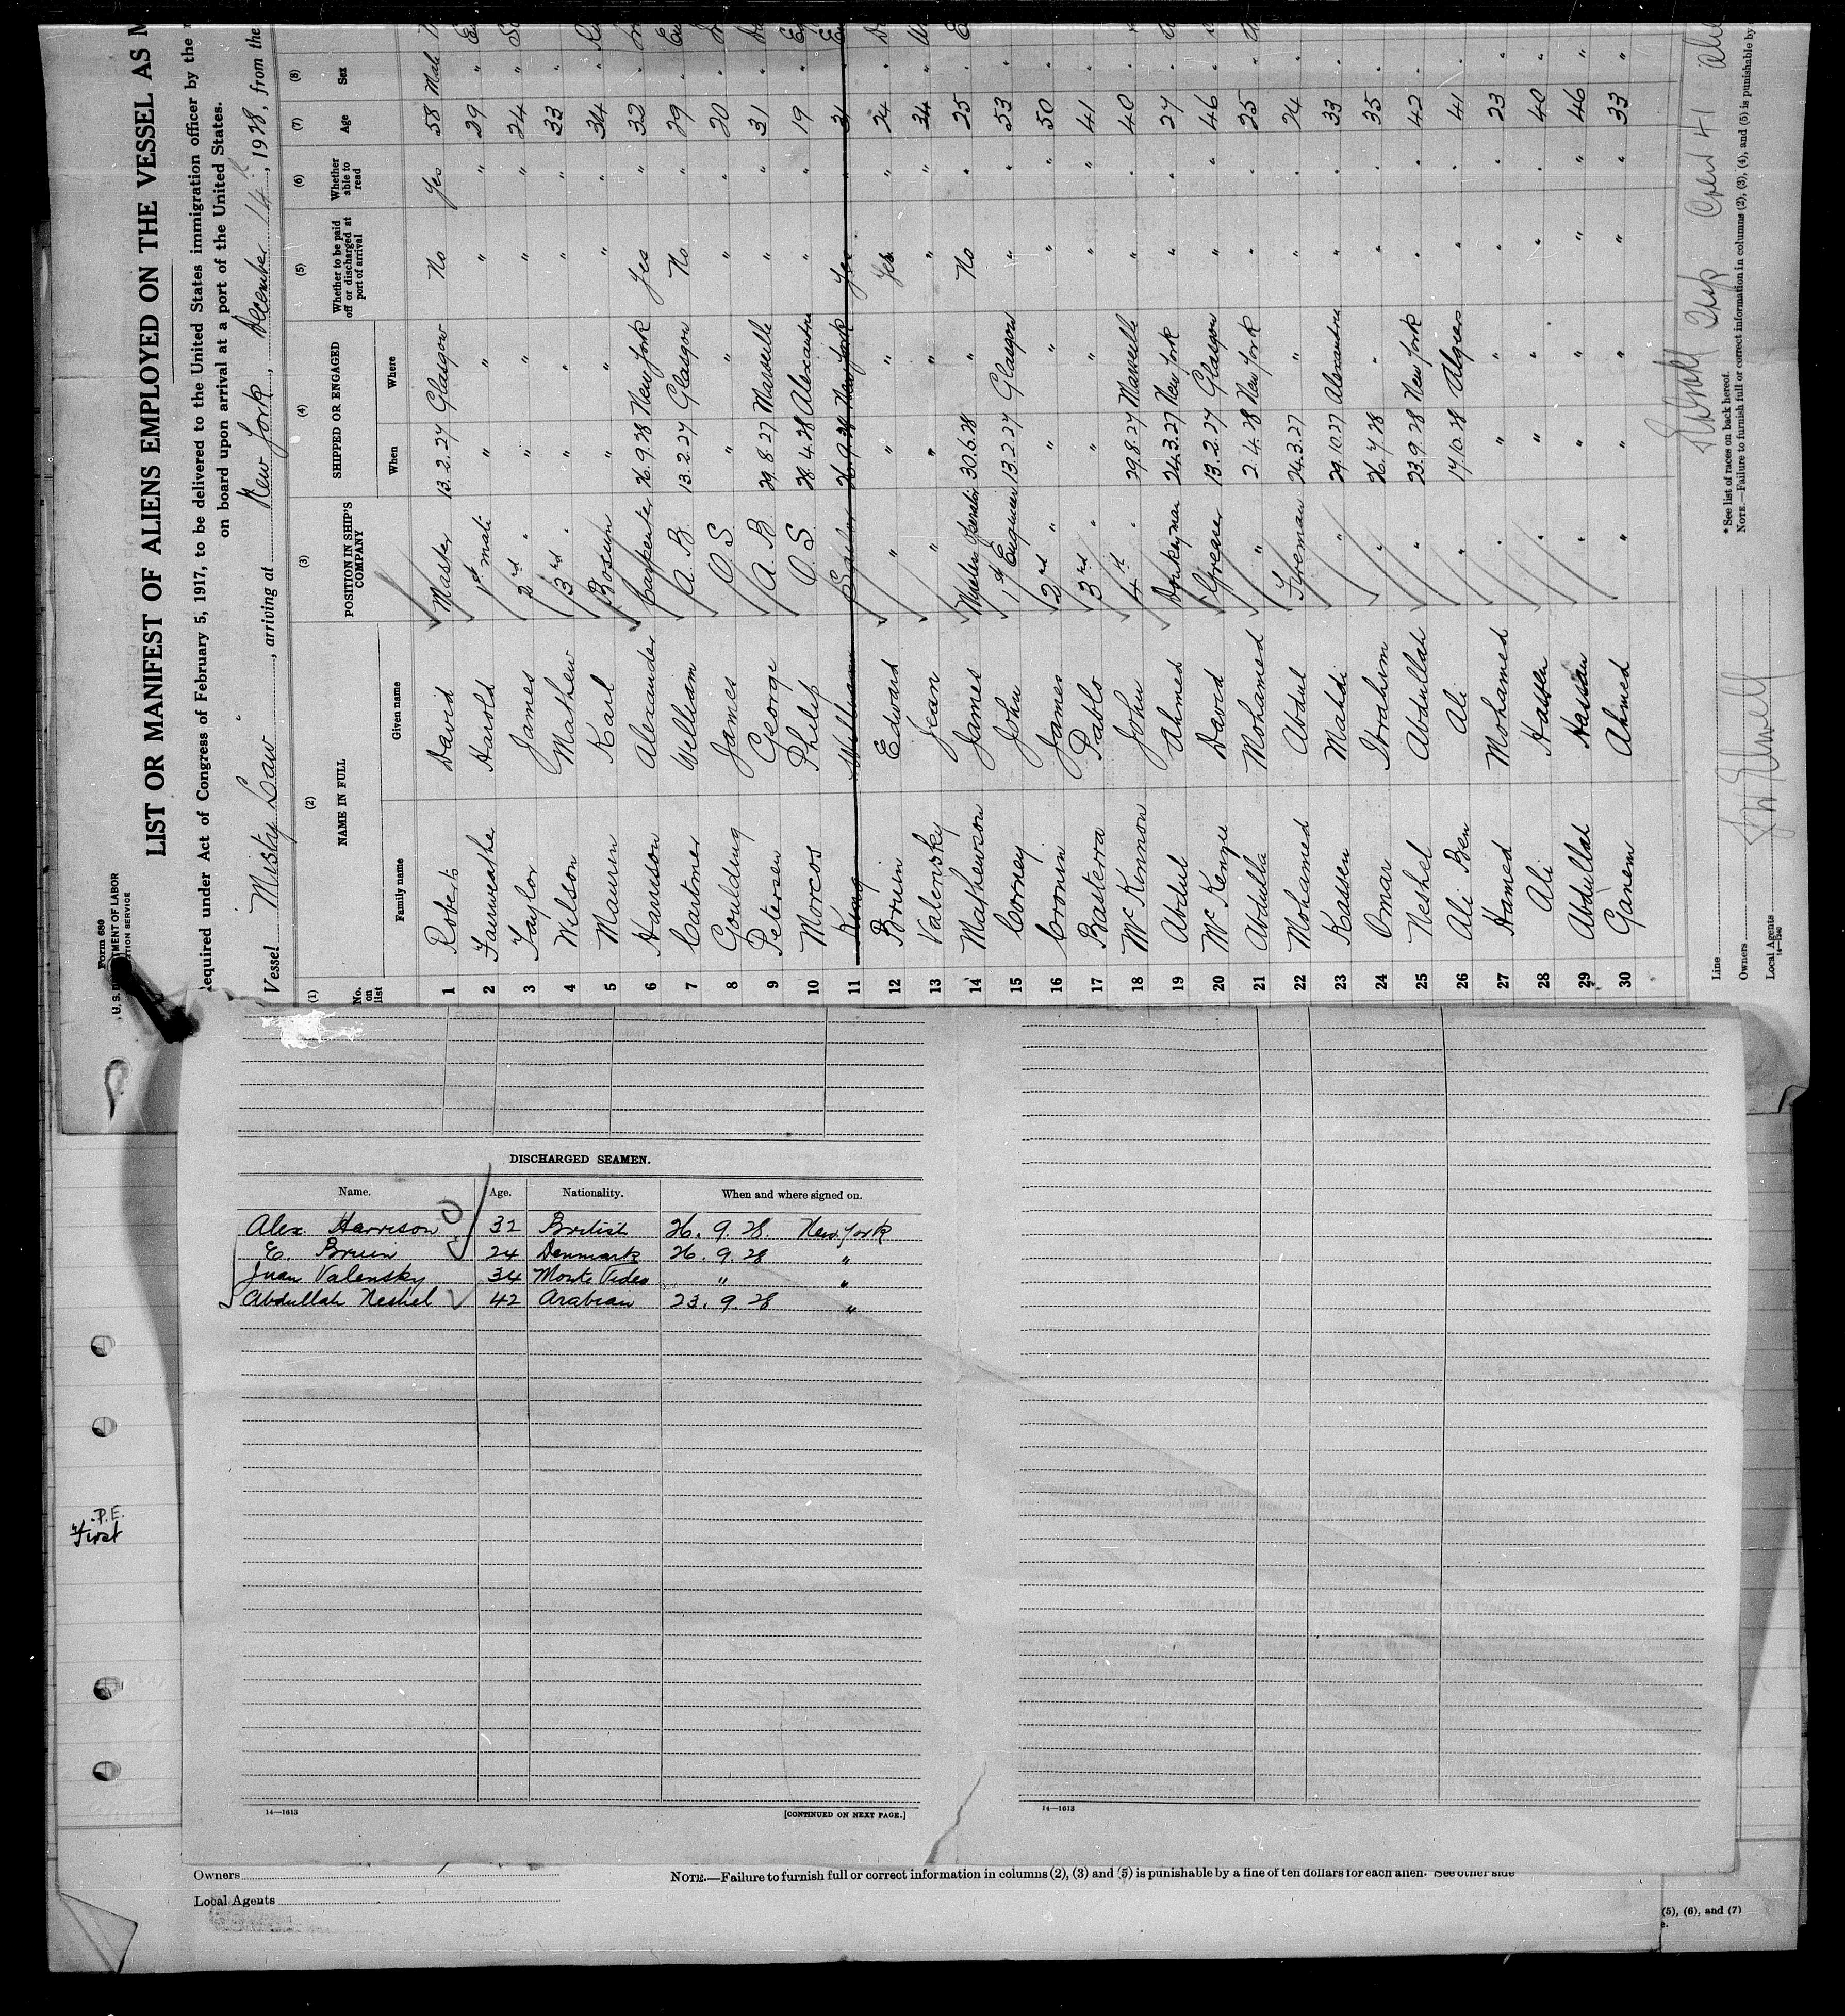 Form 689
U. S. D MENT OF LABOR
TION SERVICE
LIST OR MANIFEST OF ALIENS EMPLOYED ON THE VESSEL AS M
equired under Act of Congress of February 5, 1917, to be delivered to the United States immigration officer by the
on board upon arrival at a port of the United States.
Vessel Misty Law, arriving at New York, December 14th, 1928, from the
(1) (2) (3) (4) (5) (6) (7) (8)
No. on list NAME IN FULL POSITION IN SHIP'S COMPANY SHIPPED OR ENGAGED Whether to be paid off or discharged at port of arrival Whether able to read Age Sex
Family name Given name When Where
1 Roberts David Master 13.2.27 Glasgow No Yes 58 Male
2 Harold 1st mate " " " " 29 "
3 Taylor James 2nd " " " " " 24 "
4 Wilson Mathew 3rd " " " " " 33 "
5 Mauren Karl Bosun " " " " 34 "
6 Harrison Alexander Carpenter 26.9.28 New York Yes " 32 "
7 Castomer William A.B. 13.2.27 Glasgow No " 29 "
8 Goulding James O.S. " " " " 20 "
9 Petersen George A.B. 29.8.27 Marseille " " 31 "
10 Morcos Philip O.S. 28.4.28 Alexandria " " 19 "
11 King William Sailor 26.9.28 New York Yes " 31 "
12 Bruin Edward " " " Yes " 24 "
13 Valensky Jean " " " " " 34 "
14 Mathewson James Wireless Operator 30.6.28 " No " 25 "
15 Corney John 1st Engineer 13.2.27 Glasgow " " 53 "
16 Cronin James 2nd " " " " " 50 "
17 Basterra Pablo 3rd " " " " " 41 "
18 McKinnon John 4th " 29.8.27 Marseille " " 40 "
19 Abdul Ahmed Donkeyman 24.3.27 New York " " 27 "
20 McKenzie David Greaser 13.2.27 Glasgow " " 46 "
21 Abdulla Mohamed " 2.4.28 New York " " 25 "
22 Mohamed Abdul Fireman 24.3.27 " " " 24 "
23 Kassen Mahdi " 29.10.27 Alexandria " " 33 "
24 Omar Ibrahim " 26.4.28 " " " 35 "
25 Neshel Abdullah " 23.9.28 New York " " 42 "
26 Ali Ben Ali " 17.10.28 Algiers " " 41 "
27 Hamed Mohamed " " " " " 23 "
28 Ali " " " " " 40 "
29 Abdullah Hassan " " " " " 46 "
30 Ganem Ahmed " " " " " 33 "
Line
Owners
Local Agents
* See list of races on back hereof.
NOTE.—Failure to furnish full or correct information in columns (2), (3), (4), and (5) is punishable by
DISCHARGED SEAMEN.
Name. Age. Nationality. When and where signed on.
Alex Harrison 32 British 26.9.28. New York
E Bruin 24 Denmark 26.9.28 "
Juan Valensky 34 Monte Video " "
Abdullah Neshel 42 Arabian 23.9.28 "
14—1613 [CONTINUED ON NEXT PAGE.]
14—1613
P.E.
First
Owners
Local Agents
NOTE.—Failure to furnish full or correct information in columns (2), (3) and (5) is punishable by a fine of ten dollars for each alien. See other side
(5), (6), and (7)